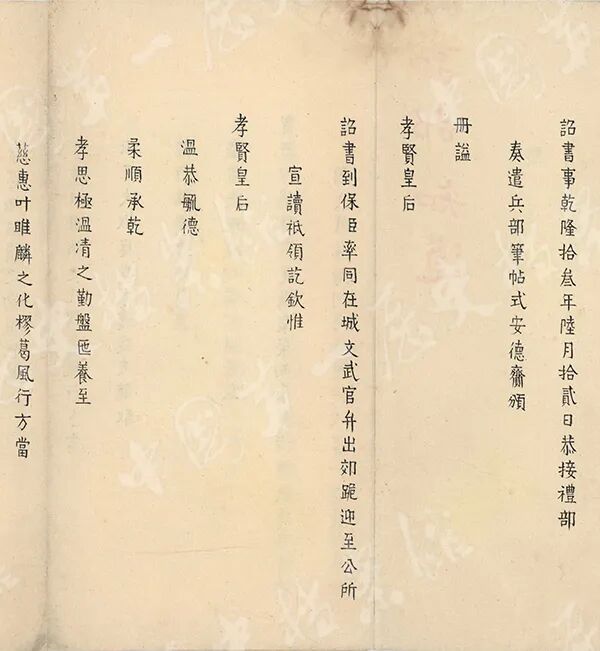 詔書事乾隆拾叁年陸月拾貳日恭接禮部
奏遣兵部筆帖式安德齋頒
冊謚
孝賢皇后
詔書到保臣率同在城文武官弁出郊跪迎至公所
宣讀祗領訖欽惟
孝賢皇后
溫恭毓德
柔順承乾
孝思極溫凊之勤盤匜養至
慈惠叶雎麟之化樛葛風行方當